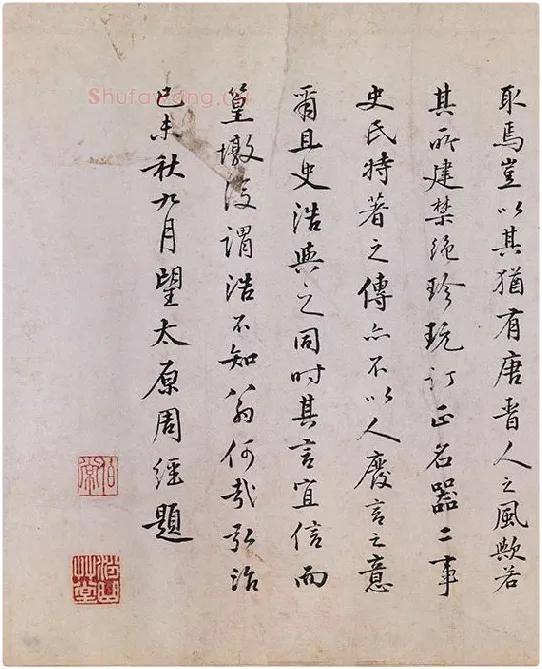 取焉豈以其猶有唐晉人之風歟若
其所建禁絶珍玩訂正名器二事
史氏特著之傳亦不以人廢言之意
爾且史浩與之同時其言宜信而
篁墩復謂浩不知八翁何哉弘治
己未秋九月望太原周經題
Shufawang.cn